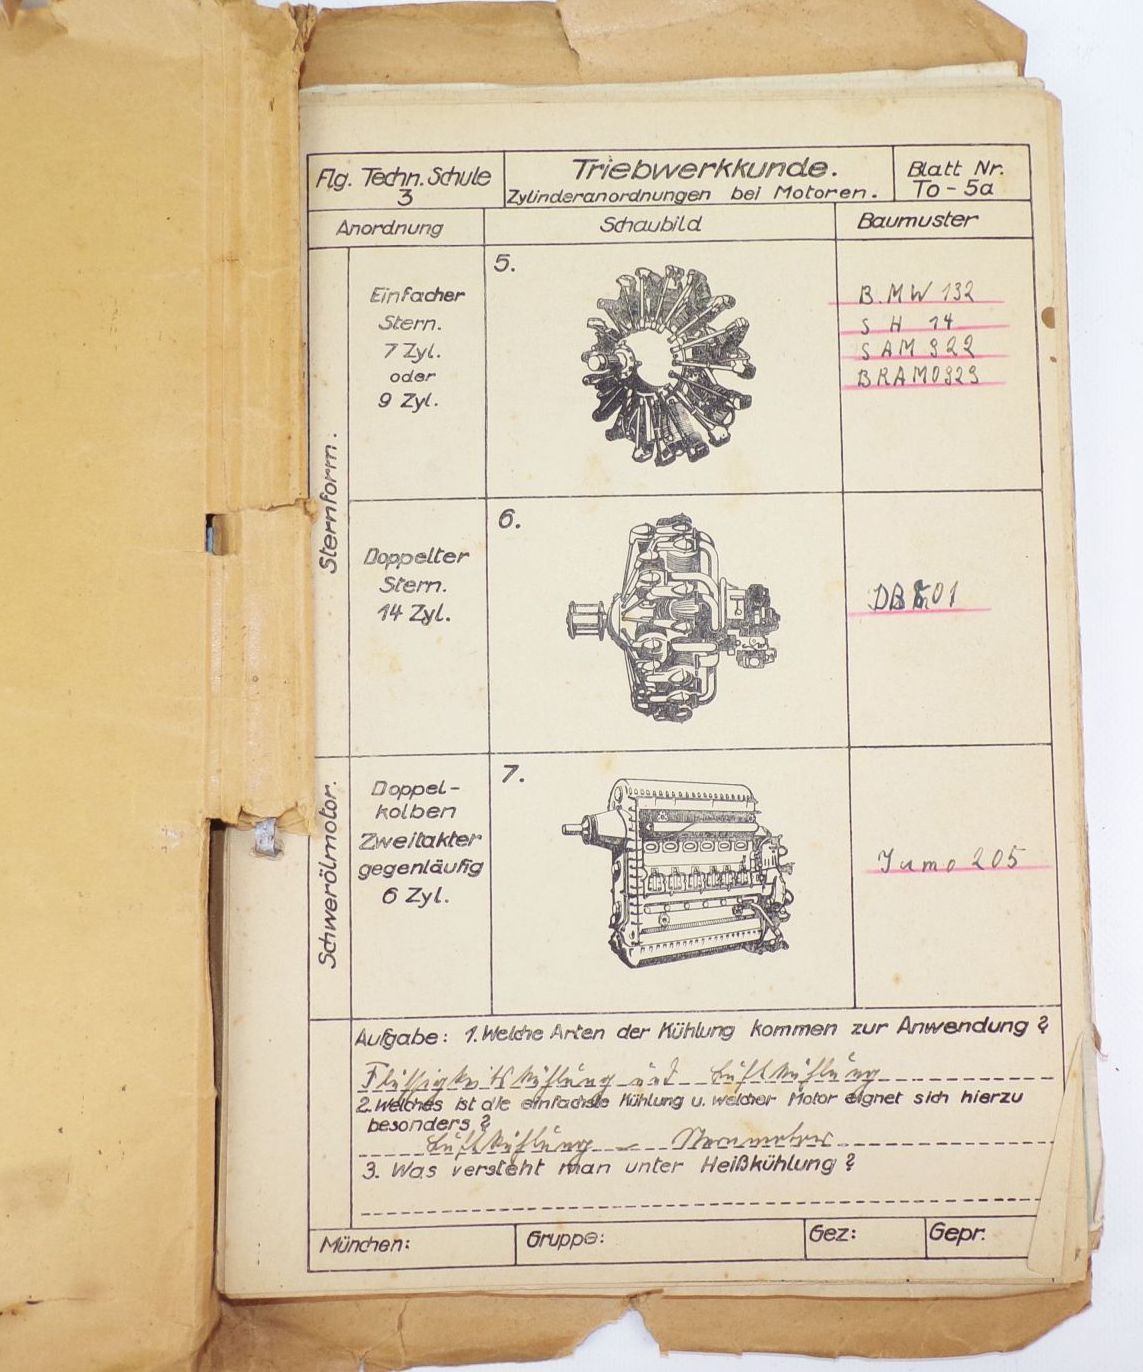 Flg. Techn. Schule
3
Triebwerkkunde.
Zylinderanordnungen bei Motoren.
Blatt Nr.
To - 5a
Anordnung
Schaubild
Baumuster
Sternform.
Einfacher
Stern.
7 Zyl.
oder
9 Zyl.
5.
B.MW 132
S H 14
SAM 322
BRAMO323
Doppelter
Stern.
14 Zyl.
6.
Schwerölmotor.
Doppel-
kolben
Zweitakter
gegenläufig
6 Zyl.
7.
Jumo 205
Aufgabe: 1. Welche Arten der Kühlung kommen zur Anwendung?
Flüssigkeitskühlung und Luftkühlung
2. Welches ist die einfachste Kühlung u. welcher Motor eignet sich hierzu
besonders?
Luftkühlung –
3. Was versteht man unter Heißkühlung?
München:
Gruppe:
Gez:
Gepr.